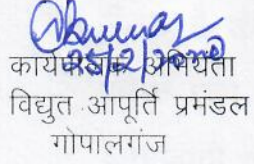 कार्यपालक अभियंता
विद्युत आपूर्ति प्रमंडल
गोपालगंज